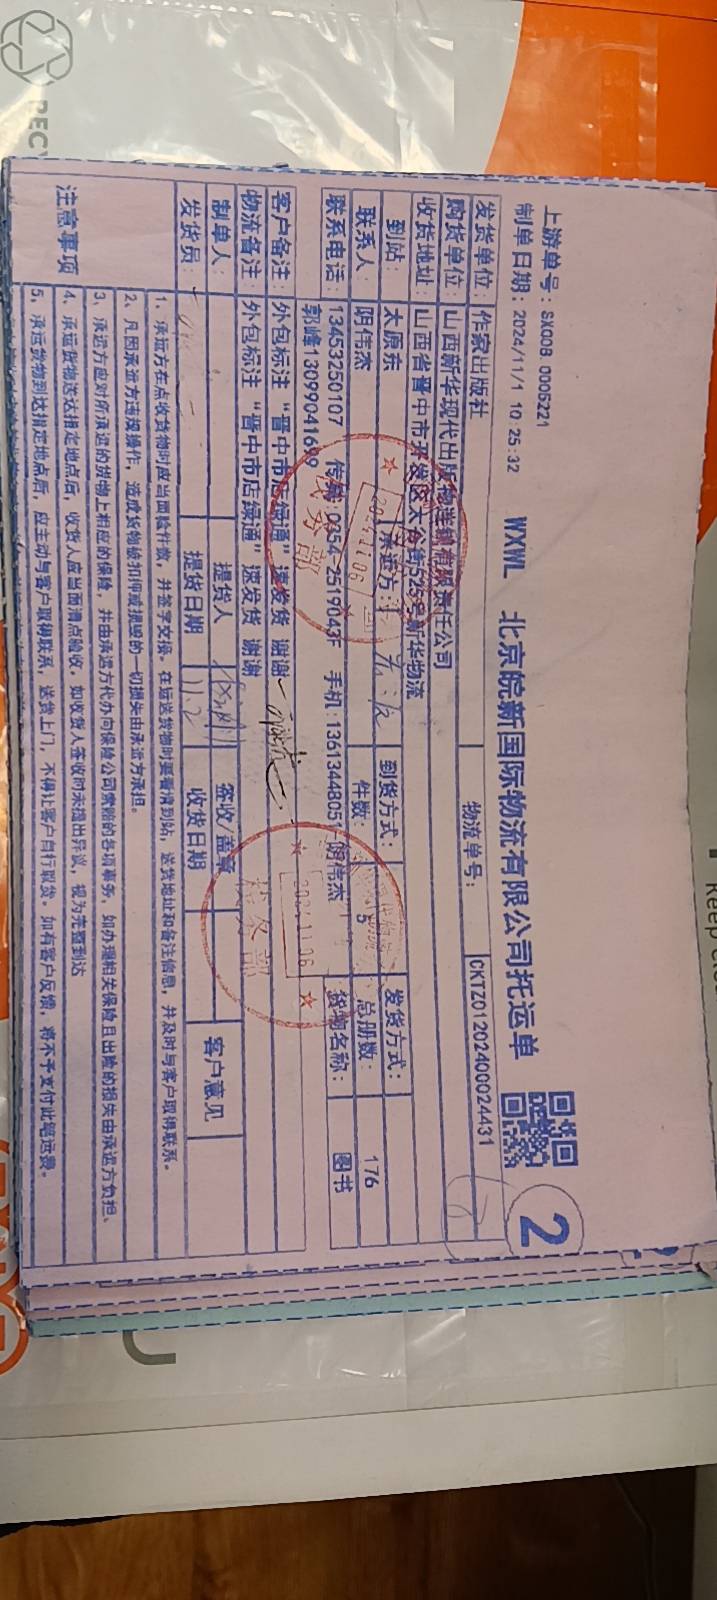 上游单号：SX00B 0005221
制单日期：2024/11/1 10:25:32 WXWL 北京皖新国际物流有限公司托运单
2
发货单位：作家出版社 物流单号：CKTZ01202400024431
购货单位：山西新华现代出版物连锁有限责任公司
收货地址：山西省晋中市开发区大谷街525号新华物流
到站：太原东 承运方： 到货方式： 发货方式：
联系人：阴伟杰 件数：5 总册数：176
联系电话：13453250107 传真:0354-2519043F 手机:13613448051-阴伟杰 货物名称：图书
郭峰13099041699
客户备注：外包标注“晋中市店绿通”速发货 谢谢
物流备注：外包标注“晋中市店绿通”速发货 谢谢
制单人： 提货人 签收/盖章 客户意见
发货员： 提货日期 11.2 收货日期
2024.11.06
业务部
2024.11.06
业务部
注意事项
1、承运方在点收货物时应当面验件数，并签字交接。在运送货物时要看清到站，送货地址和备注信息，并及时与客户取得联系。
2、凡因承运方违规操作，造成货物被扣押或损毁的一切损失由承运方承担。
3、承运方应对所承运的货物上相应的保险，并由承运方代办向保险公司索赔的各项事务，如办理相关保险且出险的损失由承运方负担、
4、承运货物送达指定地点后，收货人应当面清点验收，如收货人签收时未提出异议，视为完整到达
5、承运货物到达指定地点后，应主动与客户取得联系，送货上门，不得让客户自行取货。如有客户反馈，将不予支付此笔运费。